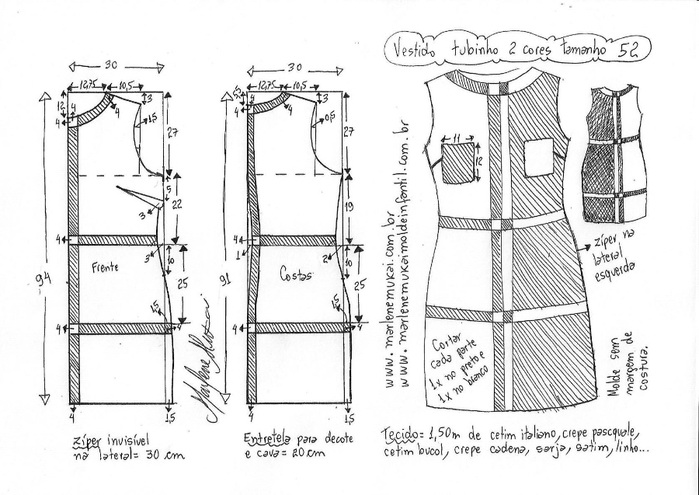 Vestido tubinho 2 cores tamanho 52
30
12,75
10,5
12
4
4
4
3
1,5
27
5
3
22
4
3
10
94
Frente
25
1,5
4
4
4
1,5
30
12,75
10,5
5,5
4
4
4
3
0,5
27
19
4
1
2
10
91
Costas
25
1,5
4
4
4
1,5
Marlene Mukai
www.marlenemukai.com.br
www.marlenemukaimoldeinfantil.com.br
11
12
zíper na
lateral
esquerda
Cortar
cada parte
1x no preto e
1x no branco
Molde sem
margem de
costura.
Zíper invisível
na lateral= 30 cm
Entretela para decote
e cava= 20 cm
Tecido= 1,50m de cetim italiano, crepe pasquale,
cetim bucol, crepe cadena, sarja, satim, linho...